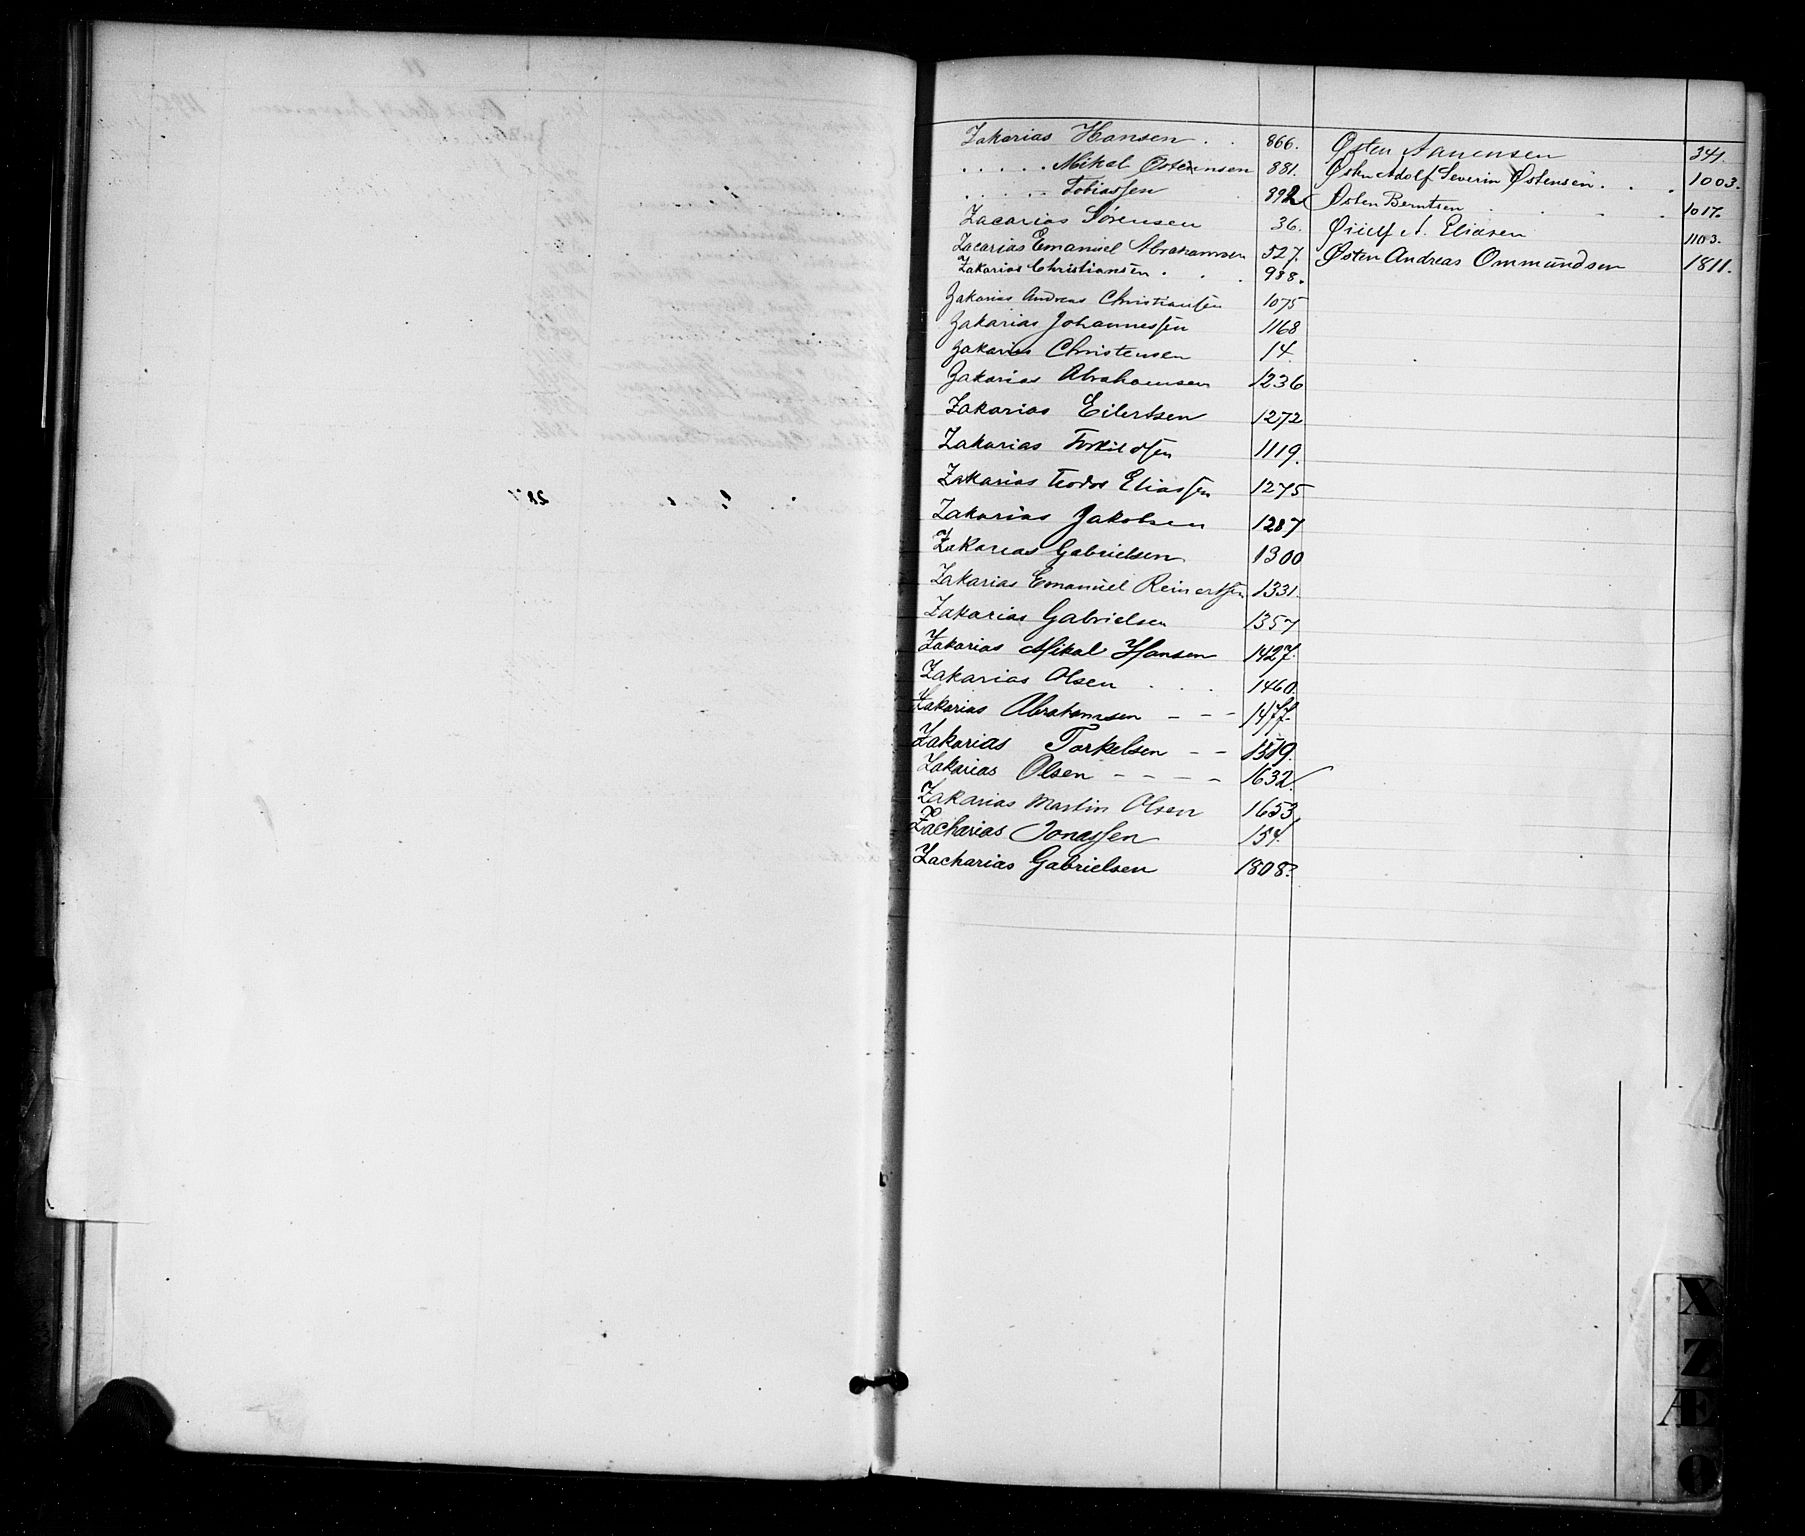 Zakarias Hansen . . 866.
. . . . . Mikal Osteninsen 881.
. . . . . Tobiassen . 892
Zacarias Sørensen 36.
Zacarias Emanuel Abrahamsen 527.
Zakarias Christiansen . . . 988.
Zakarias Andreas Christiansen 1075
Zakarias Johannessen 1168
Zakarias Christensen 14.
Zakarias Abrahamsen 1236
Zakarias Eilertsen 1272
Zakarias Torkildsen 1119.
Zakarias Teodor Eliassen 1275
Zakarias Jakobsen 1287
Zakarias Gabrielsen 1300
Zakarias Emanuel Reinertsen 1331.
Zakarias Gabrielsen 1357
Zakarias Mikal Hansen 1427.
Zakarias Olsen . . . 1460.
Zakarias Abrahamsen - - - 1477.
Zakarias Torkelsen - - 1519.
Zakarias Olsen - - - - 1632.
Zakarias Martin Olsen 1653
Zacharias Jonassen 154.
Zacharias Gabrielsen 1808.
Østen Aanensen 341.
Østen Adolf Severin Østensen . . . 1003.
Østen Berntsen . . . . 1017.
A. Eliasen 1103.
Østen Andreas Ommundsen 1811.
X
Z
Æ
Ø